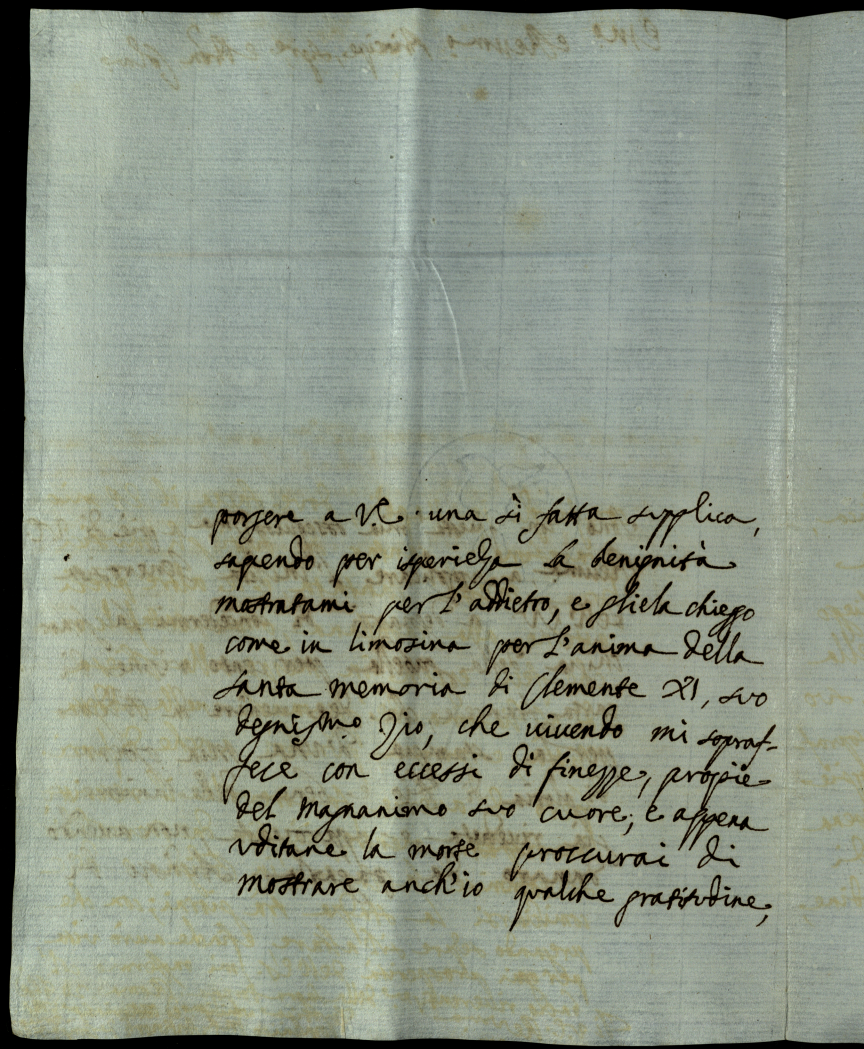 porgere a V.E. una sì fatta supplica,
sapendo per isperieza la benignità
mostratami per l'addietro, e gliela chieggo
come in limosina per l'anima della
santa memoria di Clemente XI, suo
degnissmo Zio, che vivendo mi sopraf-
fece con eccessi di finezze, proprie
del magnanimo suo cuore; e appena
uditane la morte proccurai di
mostrare anch'io qualche gratitudine,